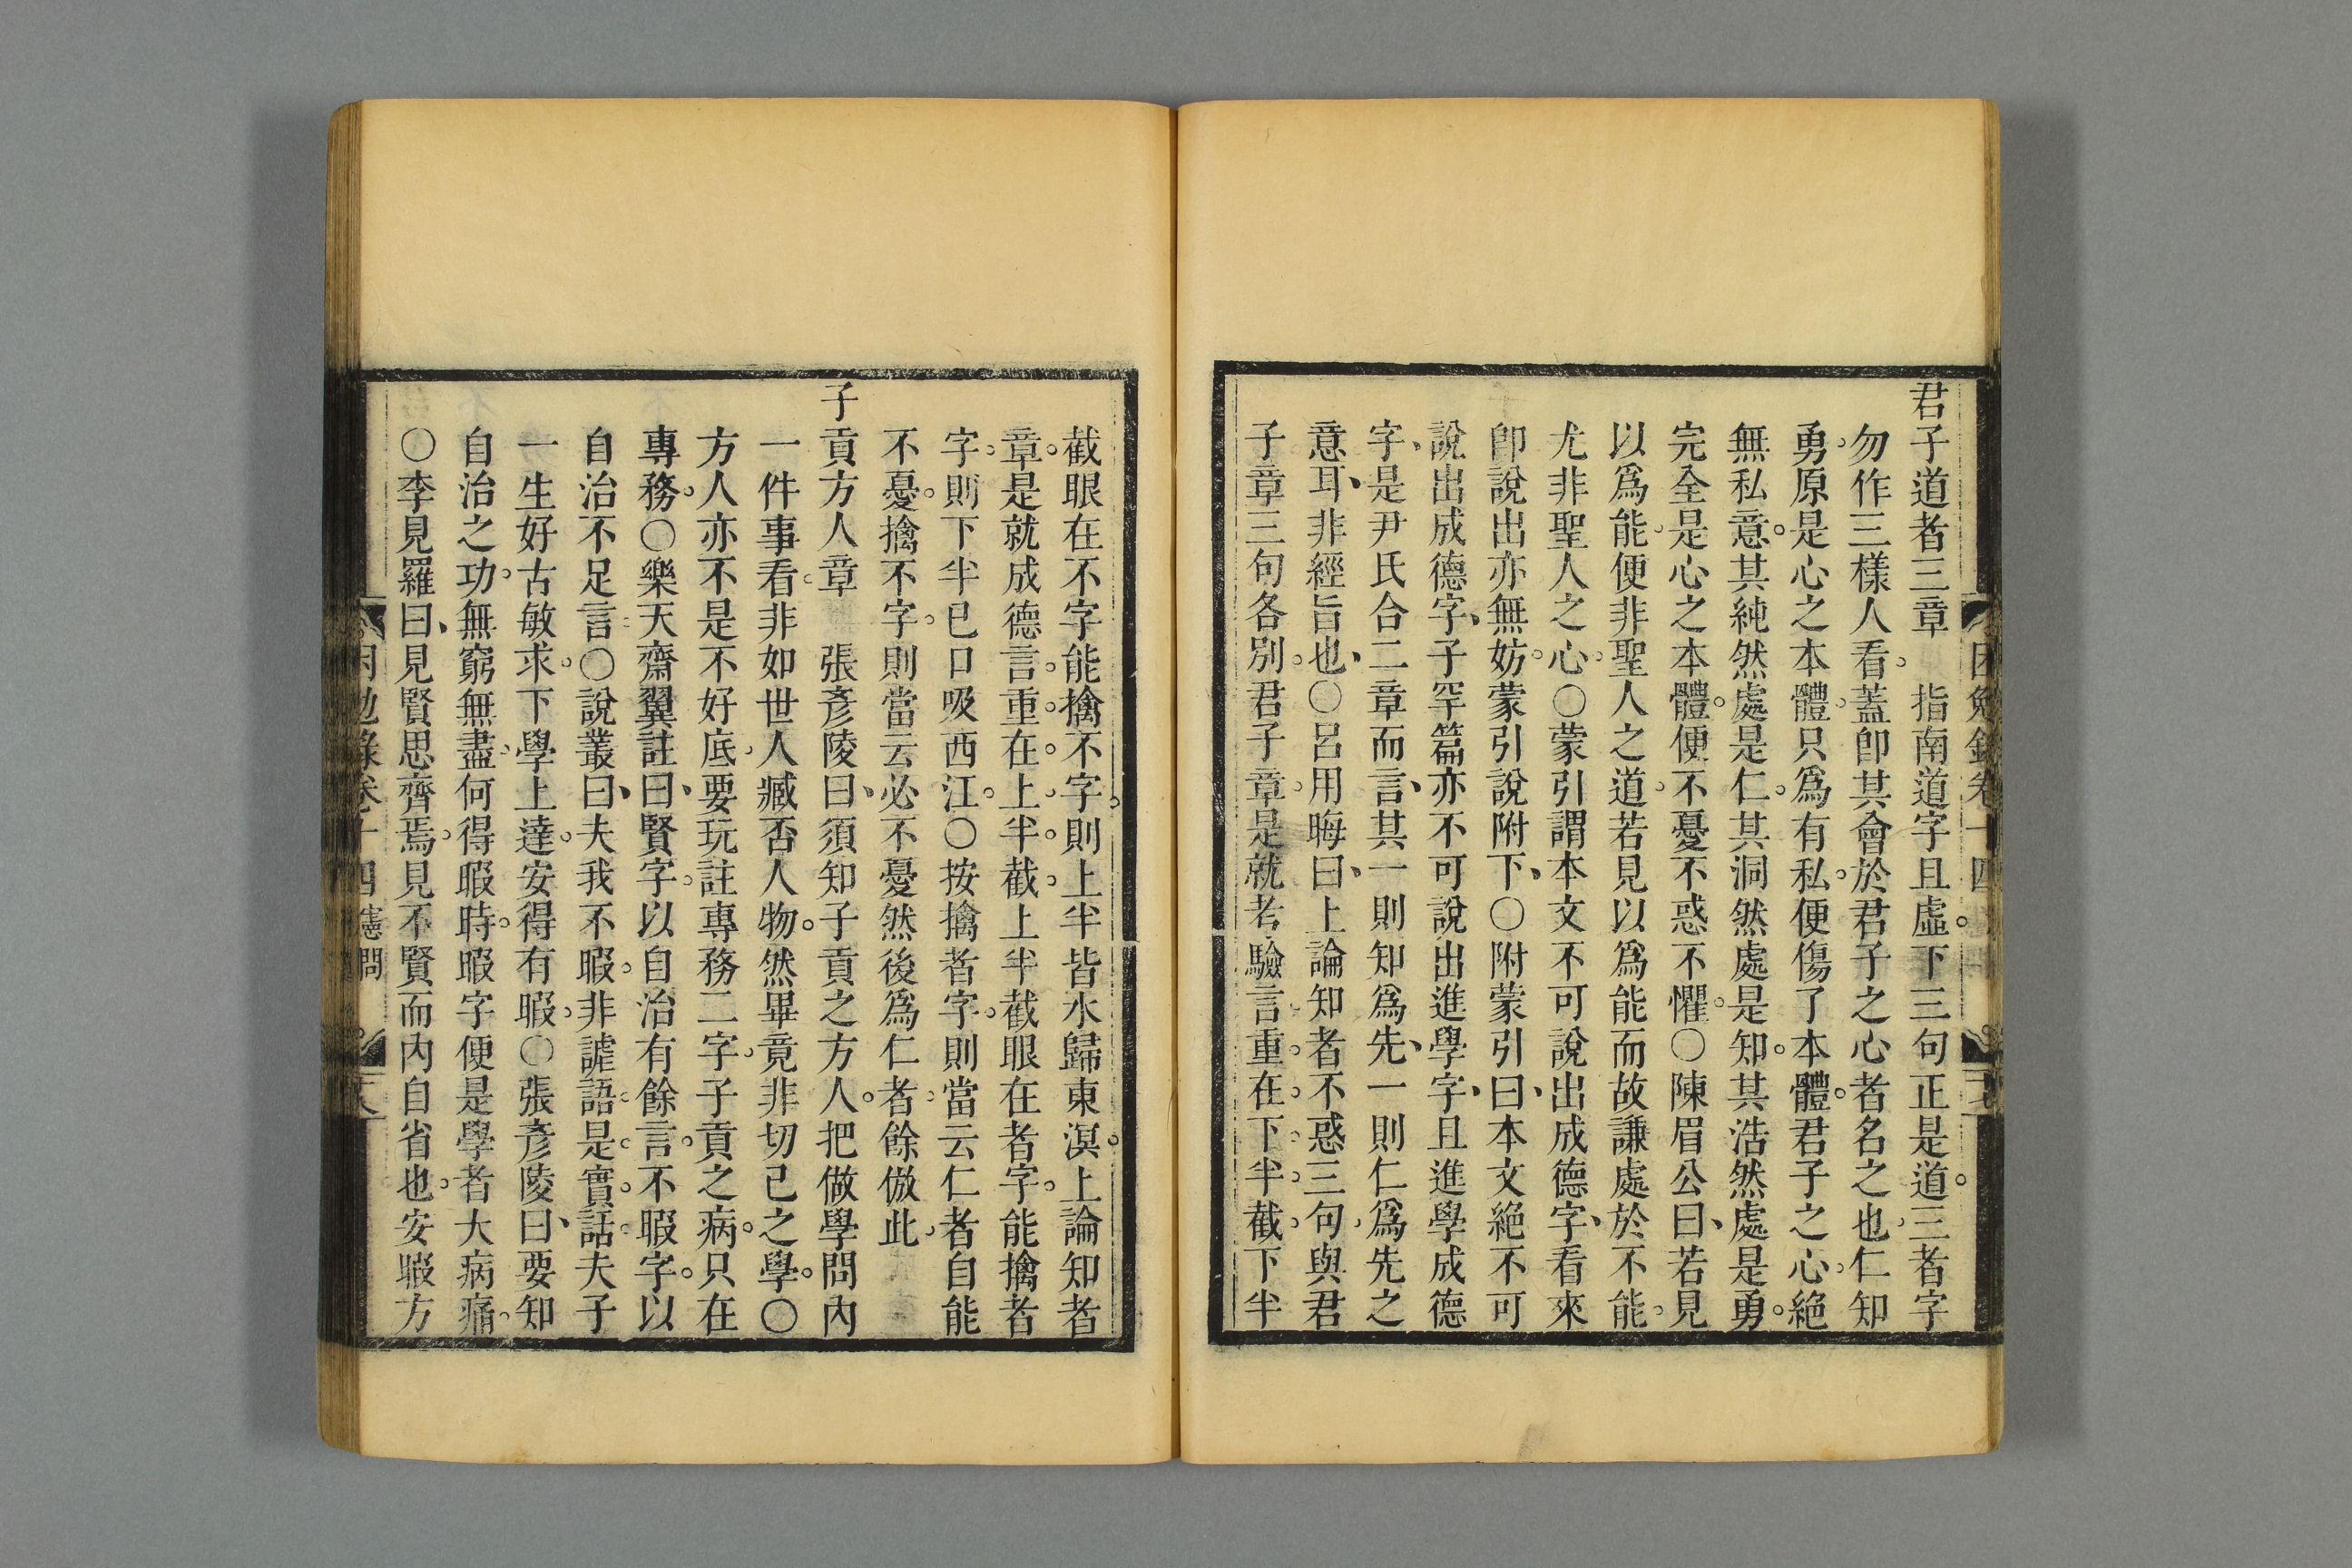 君子道者三章　指南道字且虛。下三句正是道。三者字
勿作三樣人看。蓋卽其會於君子之心者名之也。仁知
勇。原是心之本體。只爲有私。便傷了本體。君子之心。絶
無私意。其純然處是仁。其洞然處是知。其浩然處是勇。
完全是心之本體。便不憂不惑不懼。○陳眉公曰、若見
以爲能。便非聖人之道。若見以爲能而故謙處於不能。
尤非聖人之心。○蒙引謂本文不可說出成德字、看來
卽說出亦無妨。蒙引說附下、○附蒙引曰、本文絶不可
說出成德字、子罕篇亦不可說出進學字、且進學成德
字、是尹氏合二章而言、其一則知爲先、一則仁爲先之
意耳、非經旨也、○呂用晦曰、上論知者不惑三句。與君
子章三句各別。君子章。是就考驗言。重。在。下。半。截。下半
截眼在不字能擒不字。則上半皆水歸東溟。上論知者
章。是就成德言。重。在。上。半。截。上半截眼在者字。能擒者
字。則下半已口吸西江。○按擒者字。則當云仁者自能
不憂。擒不字。則當云必不憂然後爲仁者。餘倣此。
子貢方人章　張彥陵曰、須知子貢之方人。把做學問內
一件事看。非如世人臧否人物。然畢竟非切己之學。○
方人亦不是不好底。要玩註專務二字。子貢之病。只在
專務。○樂天齋翼註曰、賢字。以自治有餘言。不暇字。以
自治不足言。○說叢曰、夫我不暇。非謔語。是。實。話。夫子
一生好古敏求。下學上達。安得有暇。○張彥陵曰、要知
自治之功。無窮無盡。何得暇時。暇字便是學者大病痛。
○李見羅曰、見賢思齊焉。見不賢而內自省也。安暇方
困勉錄卷十四　憲問